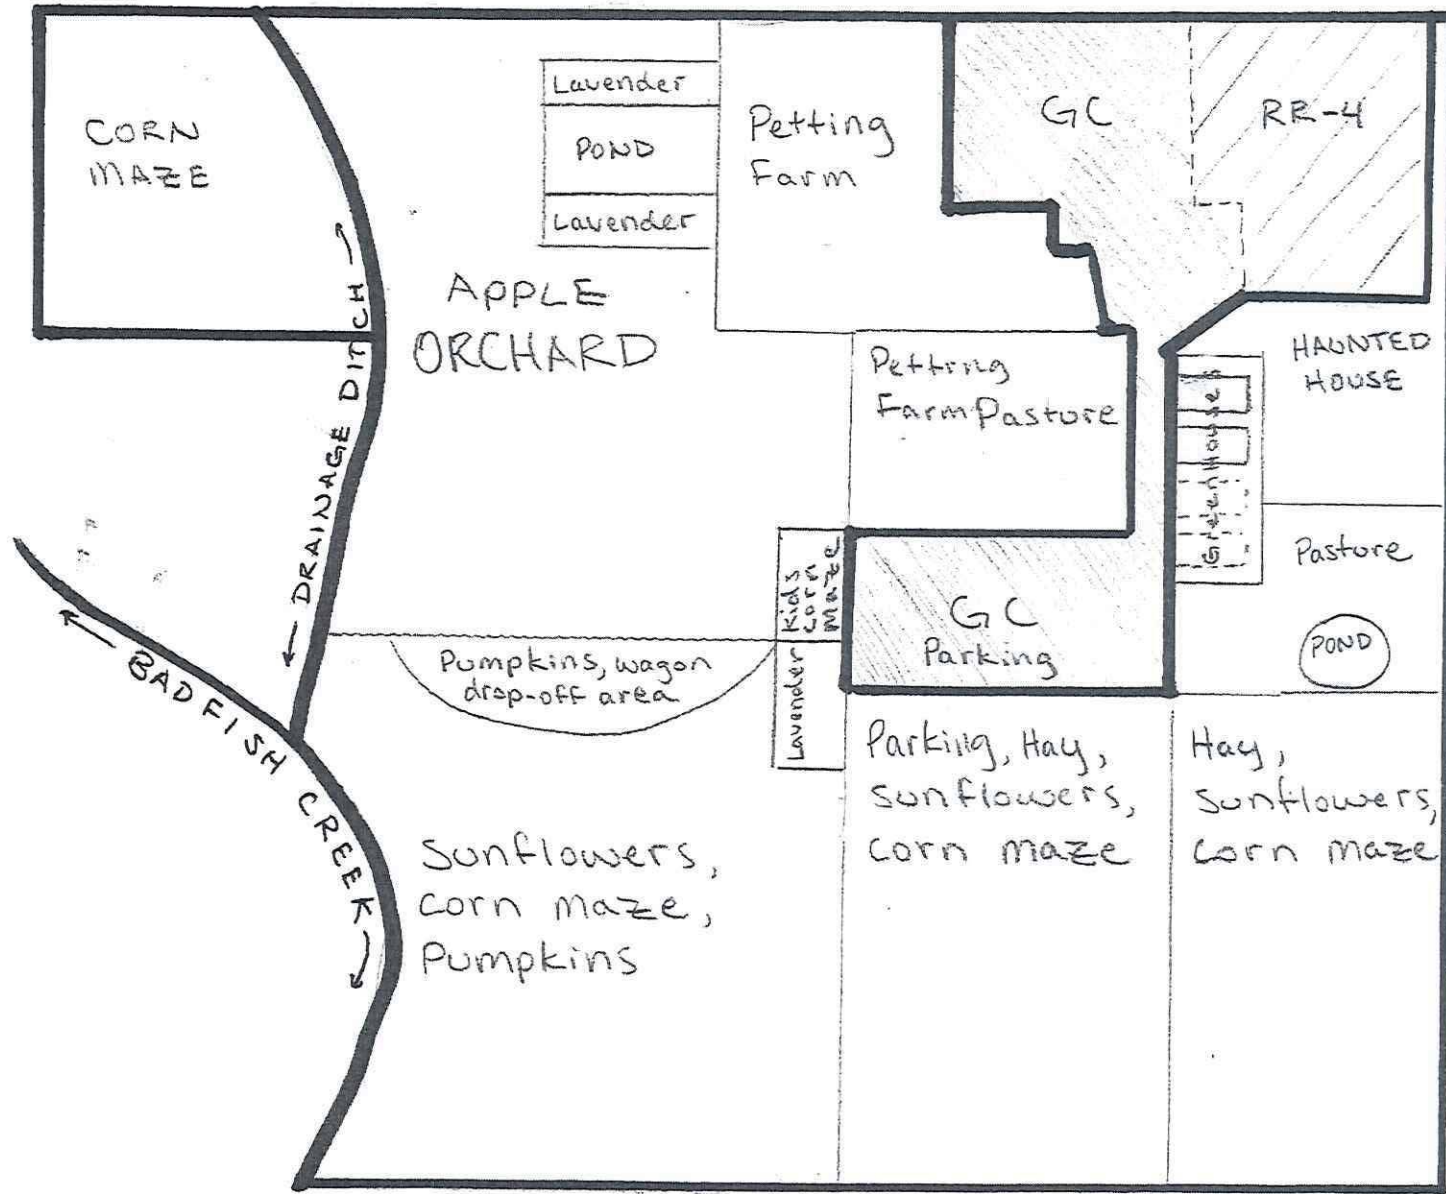 CORN
MAZE
Lavender
POND
Lavender
Petting
Farm
GC
RR-4
APPLE
ORCHARD
DRAINAGE DITCH
Petting
Farm Pasture
HAUNTED
HOUSE
Greenhouses
Pasture
POND
Kids
Corn
Maze
GC
Parking
Pumpkins, wagon
drop-off area
Lavender
BADFISH CREEK
Parking, Hay,
sunflowers,
corn maze
Hay,
Sunflowers,
corn maze
Sunflowers,
corn maze,
Pumpkins